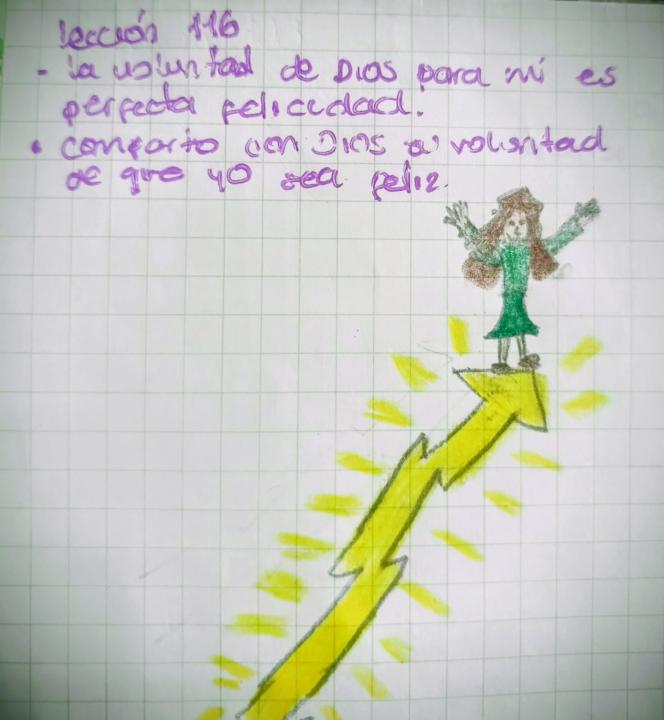 lección 116
- la voluntad de Dios para mí es
perfecta felicidad.
• comparto con Dios a' voluntad
de que yo sea feliz.